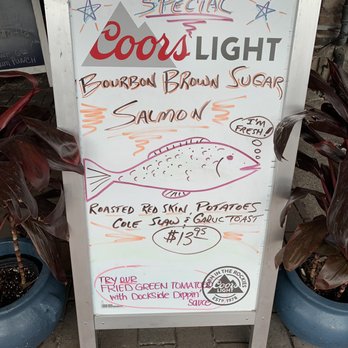 SPECIAL
Coors LIGHT
BOURBON BROWN SUGAR
SALMON
I'M
FRESH!
ROASTED RED SKIN POTATOES
COLE SLAW & GARLIC TOAST
$13.95
TRY OUR
FRIED GREEN TOMATO
with DockSide Dippin'
Sauce
BORN IN THE ROCKIES
Coors
LIGHT
ESTD. 1978
PUNCH